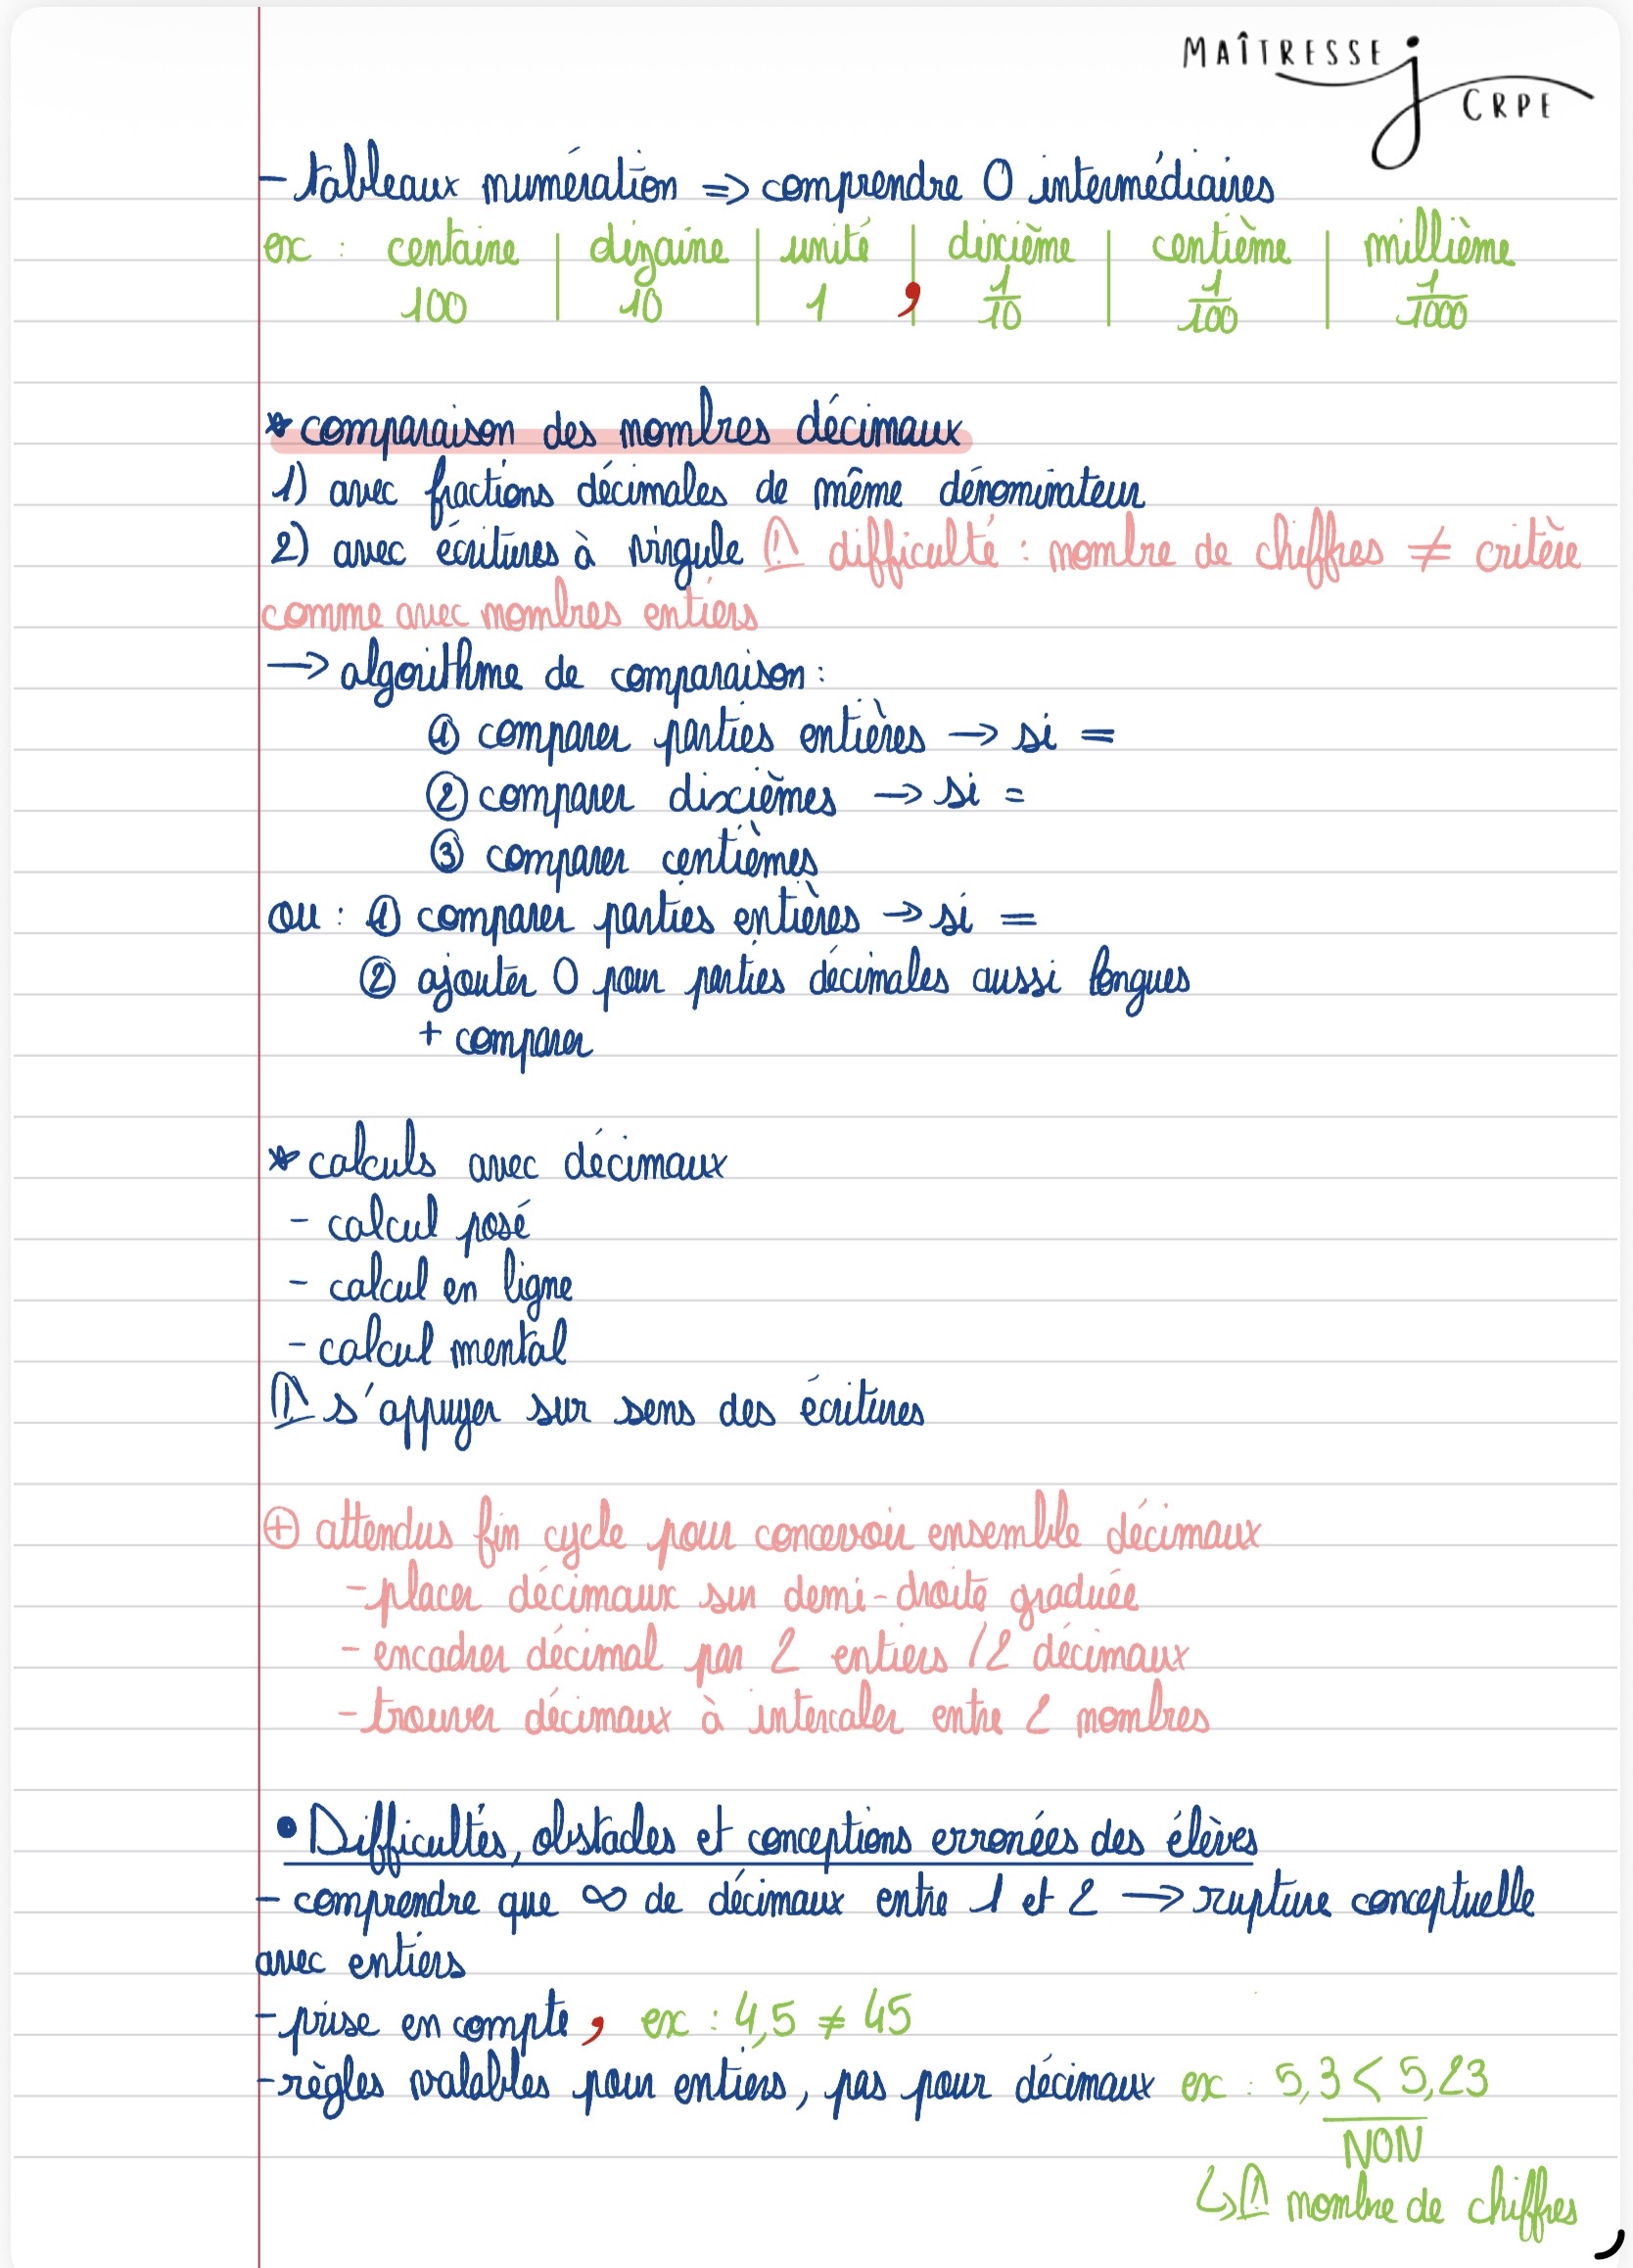 MAÎTRESSE J CRPE
- tableaux numération => comprendre 0 intermédiaires
ex : centaine | dizaine | unité | dixième | centième | millième
100 | 10 | 1 , 1/10 | 1/100 | 1/1000
* comparaison des nombres décimaux
1) avec fractions décimales de même dénominateur
2) avec écritures à virgule ⚠ difficulté : nombre de chiffres ≠ critère
comme avec nombres entiers
→ algorithme de comparaison :
① comparer parties entières → si =
② comparer dixièmes → si =
③ comparer centièmes
ou : ① comparer parties entières → si =
② ajouter 0 pour parties décimales aussi longues
+ comparer
* calculs avec décimaux
- calcul posé
- calcul en ligne
- calcul mental
⚠ s'appuyer sur sens des écritures
⊕ attendus fin cycle pour concevoir ensemble décimaux
- placer décimaux sur demi-droite graduée
- encadrer décimal par 2 entiers / 2 décimaux
- trouver décimaux à intercaler entre 2 nombres
• Difficultés, obstacles et conceptions erronées des élèves
- comprendre que ∞ de décimaux entre 1 et 2 → rupture conceptuelle
avec entiers
- prise en compte , ex : 4,5 ≠ 45
- règles valables pour entiers, pas pour décimaux ex : 5,3 < 5,23
NON
↳ ⚠ nombre de chiffres